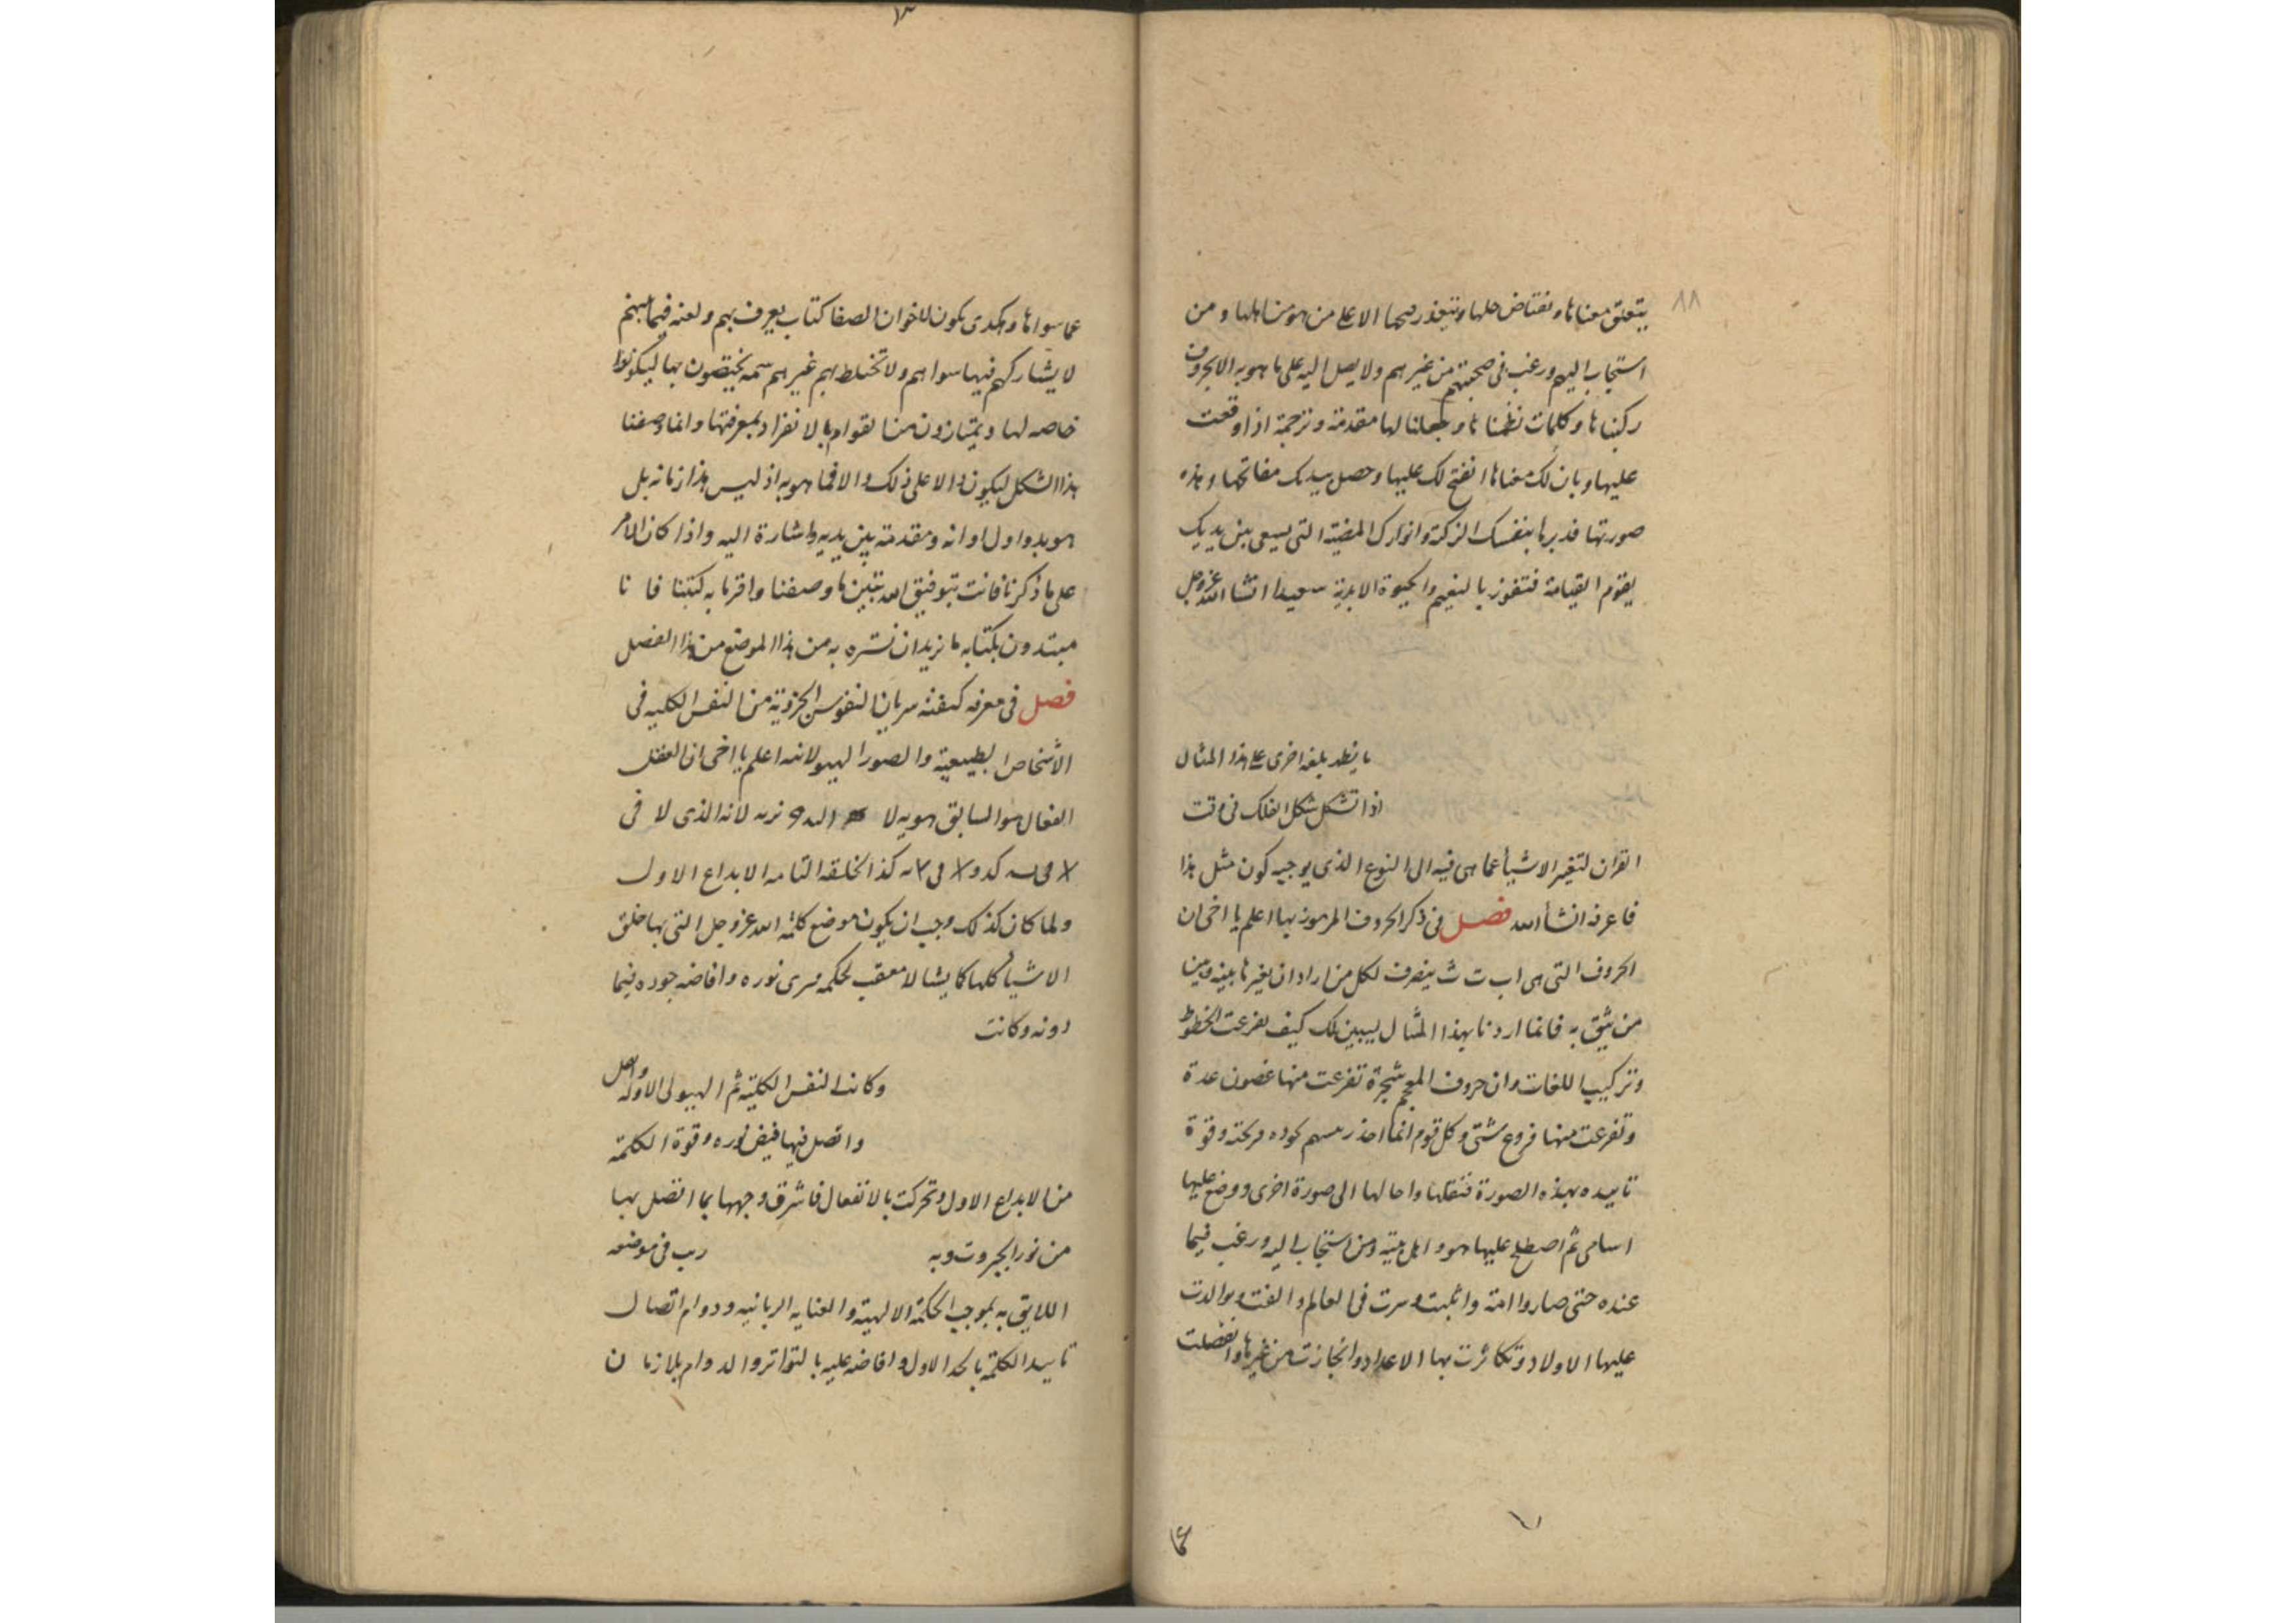 ٨٨
يتعلق معناها ويعتاض حلها ويتعذر فتحها الا على من هو من اهلها ومن
استجاب اليهم ورغب في صحبتهم من غيرهم ولا يصل اليه على ما هو به الا بحروف
ركبناها وكلمات نظمناها وجعلنا لها مقدمة وترجمة اذا وقعت
عليها وبان لك معناها انفتح لك عليها وحصل بيدك مفاتحها وهذه
صورتها فدبرها بنفسك الزكية وانوارك المضية التي يسعى بين يديك
يقوم القيامة فتفوز بالنعيم والحيوة الابدية سعيدا انشا الله عز وجل
ما ينظر بلغه اخرى على هذا المثال
اذا تشكل شكل الفلك في وقت
القران لتغير الاشيأ عما هي فيه الى النوع الذي يوجبه كون مثل هذا
فاعرفه انشأ الله فصل في ذكر الحروف المرموز بها اعلم يا اخي ان
الحروف التي هي ا ب ت ث ينصرف لكل من اراد ان يغيرها بينه وبين
من يثق به فانما اردنا بهذا المثال ليبين لك كيف تفرعت الخطوط
وتركيب اللغات وان حروف المعجم شجرة تفرعت منها غصون عدة
وتفرعت منها فروع شتى وكل قوم انما اخذ رئيسهم وقوة
تاييده بهذه الصورة فنقلها واحالها الى صورة اخرى ووضع عليها
اسامي ثم اصطلح عليها هو واهل بيته ومن استجاب اليه ورغب فيما
عنده حتى صاروا امة وانبثت وسرت في العالم والفت وتوالدت
عليها الاولاد وتكاثرت بها الاعداد وانحازت من غيرها وانفصلت
عما
عما سواها وهكذى يكون لاخوان الصفا كتاب يعرف بهم ولغه فيما بينهم
لا يشاركهم فيها سواهم ولا تختلط بهم غيرهم سمه يختصون بها ليكونوا
خاصه لها ويمتازون من بالانفراد بمعرفتها وانما وصفنا
هذا الشكل ليكون دالا على ذلك والا فما هو به اذ ليس هذا زمانه بل
هو بدو اول اوانه ومقدمة بين يديه واشارة اليه واذا كان الامر
على ما ذكرنا فانت بتوفيق الله تتبين ما وصفنا واقرنا به كتبنا فانا
مبتدون بكتابه ما نريد ان نسره به من هذا الموضع من هذا الفصل
فصل في معرفه كيفية سريان النفوس الجزوية من النفس الكليه في
الأشخاص الطبيعية والصور الهيولانيه اعلم يا اخي ان العقل
الفعال هو السابق هويه لا لانه الذي لا في
كذا الخلقه التامه الابداع الاول
ولما كان كذلك وجب ان يكون موضع كلمة الله عز وجل التي بها خلق
الاشيأ كلها كما يشا لا معقب لحكمه سرى نوره وافاضه جوده فيما
دونه وكانت
وكانت النفس الكلية ثم الهيولى الاوله واصل
واتصل فيها فيض نوره وقوة الكلمة
من الابداع الاول وتحركت بالانفعال فاشرق وجهها بما اتصل بها
من نور الجبروت وبه رب في موضعه
اللايق به بموجب الحكمة الالهية والعنايه الربانيه ودوام اتصال
تاييد الكلمة بالحد الاول وافاضه عليه بالتواتر والدوام بلا زمان